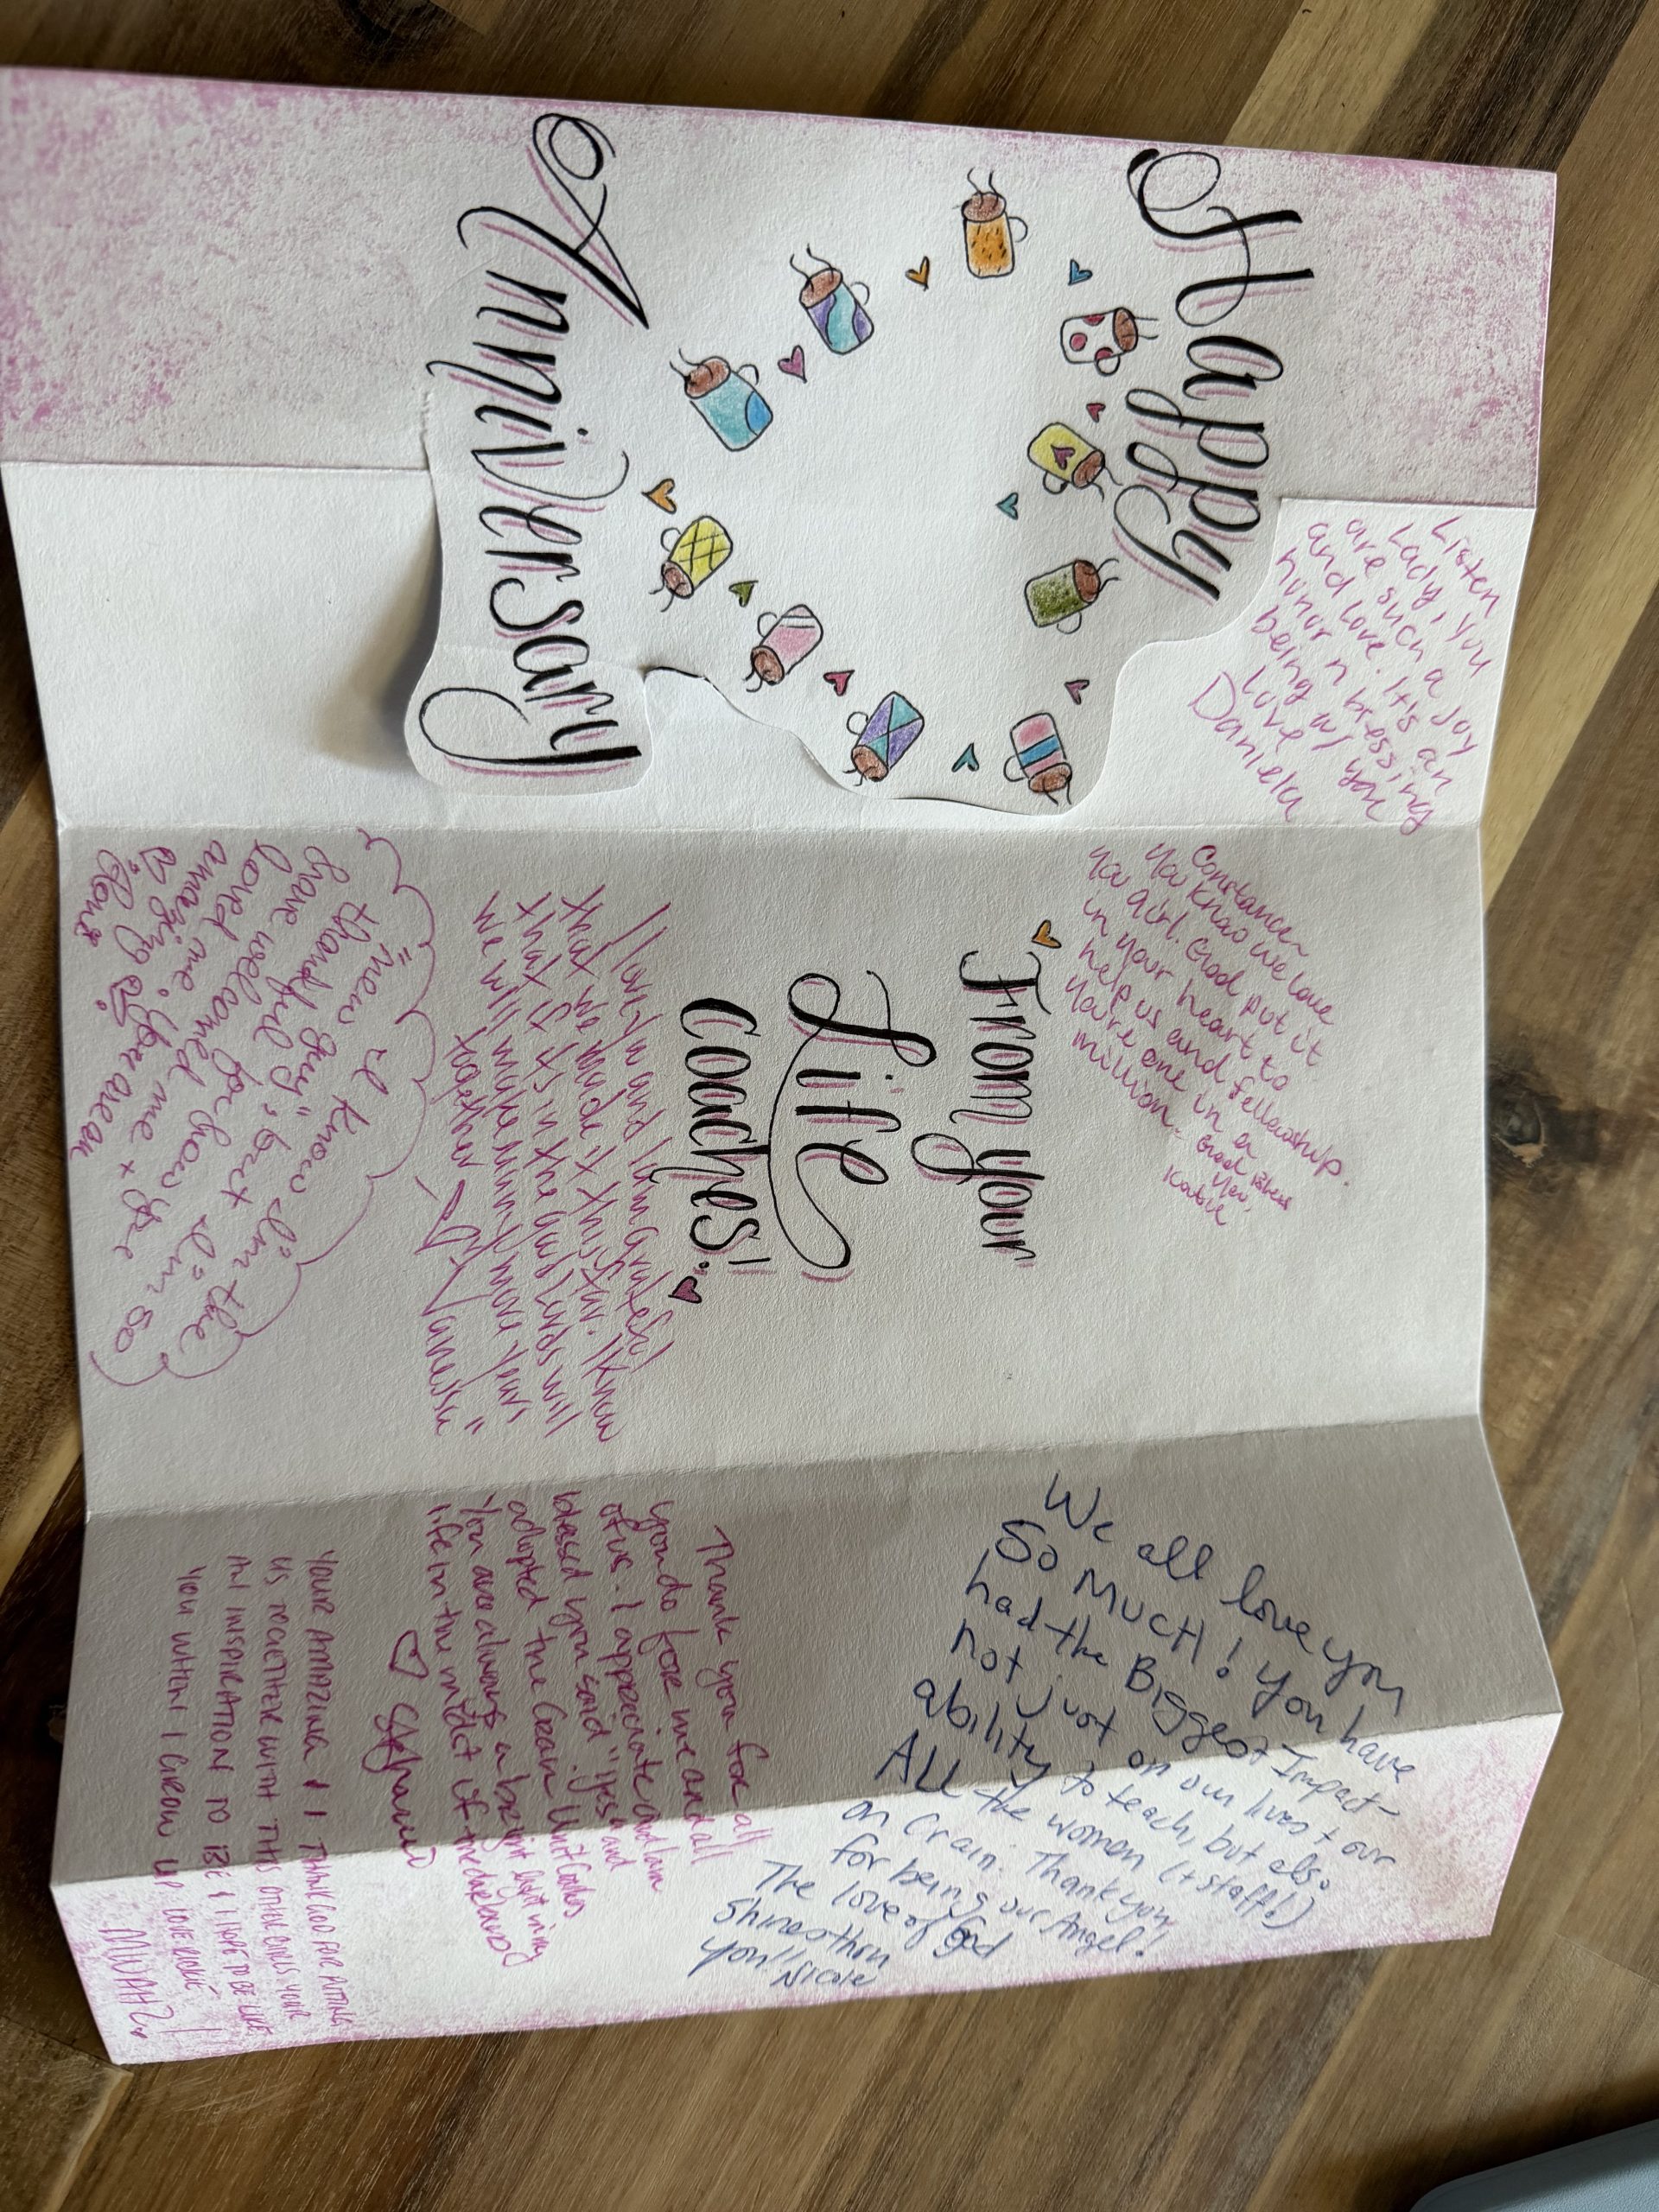 Happy
Anniversary
Listen
Lady, you
are such a joy
and love. It's an
honor n blessing
being w/ you
Love
Daniela
From your
Life
Coaches!
Constance~
You know we love
You girl. God put it
in your heart to
help us and fellowship.
You're one in a
million.~ God Bless
You,
Katie
I love ya and I am grateful
that we made it this far. I know
that it is in the good Lords will
We will make many more "years"
together
Vanessa
I know I'm the
"new guy" but I'm so
thankful for how you
have welcomed me + you
loved me. You are an
amazing
We all love you
So Much! You have
had the Biggest Impact-
not just on our lives + our
ability to teach, but also
All the women (+ staff!)
on Crain. Thank you
for being our Angel!
The love of God
Shines thru
you!! Nicole
Thank you for all
you do for me and all
of us. I appreciate and am
blessed you said "yes" and
adopted the Crain Unit Coaches
You are always a bright light in my
life in the midst of the darkness
YOUR AMAZING & I THANK GOD FOR PUTTING
US TOGETHER WITH THIS OTHER GIRLS YOUR
AN INSPIRATION TO ME & I HOPE TO BE LIKE
YOU WHEN I GROW UP. LOVE
MWAHZ!